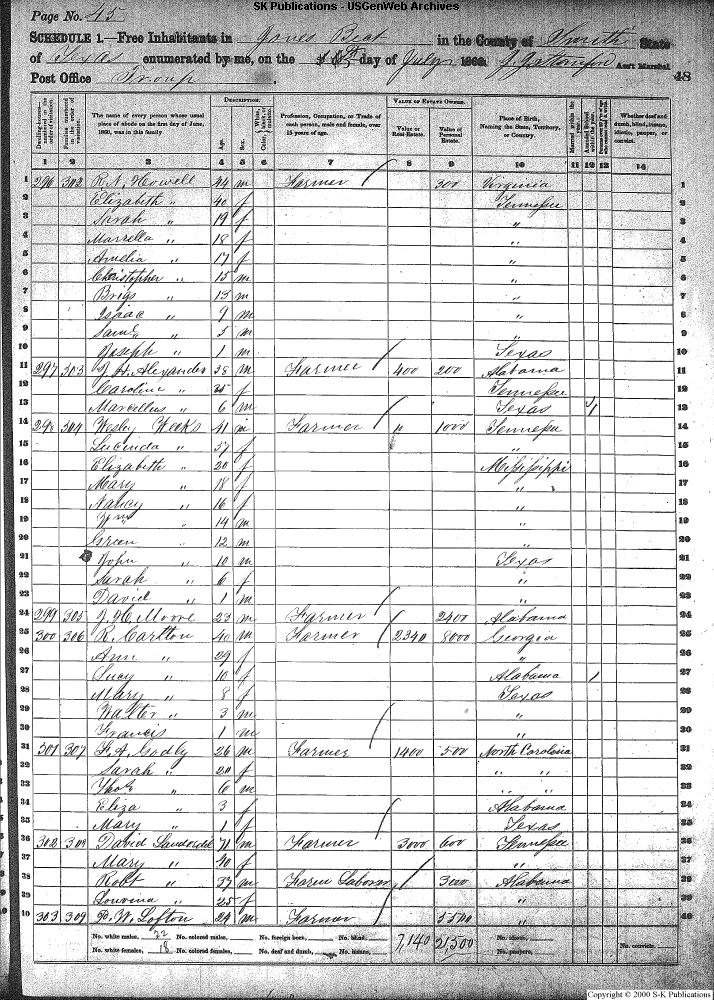 SK Publications - USGenWeb Archives
Page No. 45
SCHEDULE 1.—Free Inhabitants in Jones Beat in the County of Smith State
of Texas enumerated by me, on the day of July 1860. Ass't Marshal
Post Office Troup . 48
Dwelling-houses— numbered in the order of visitation. Families numbered in the order of visitation. The name of every person whose usual place of abode on the first day of June, 1860, was in this family. DESCRIPTION. Age. Sex. Color, White, black, or mulatto. Profession, Occupation, or Trade of each person, male and female, over 15 years of age. VALUE OF ESTATE OWNED. Value of Real Estate. Value of Personal Estate. Place of Birth, Naming the State, Territory, or Country. Married within the year. Attended School within the year. Whether deaf and dumb, blind, insane, idiotic, pauper, or convict.
1 2 3 4 5 6 7 8 9 10 11 12 13 14
1 296 302 R. N. Howell 44 m Farmer 300 Virginia 1
2 Elizabeth " 40 f Tennessee 2
3 Sarah " 19 f " 3
4 " 18 f " 4
5 Amelia " 17 f " 5
6 Christopher " 15 m " 6
7 Brigs " 13 m " 7
8 Isaac " 9 m " 8
9 Saml " m " 9
10 Joseph " 1 m Texas 10
11 297 303 Alexander 38 m Farmer 400 200 Alabama 11
12 Caroline " f Tennessee 12
13 Marcellus " 6 m Texas 1 13
14 298 304 Wesley Weeks 41 m Farmer 1000 Tennessee 14
15 Lucinda " 37 f " 15
16 Elizabeth " 20 f Mississippi 16
17 Mary " 18 f " 17
18 Nancy " 16 f " 18
19 Wm " 14 m " 19
20 Green " 12 m " 20
21 John " 10 m Texas 21
22 Sarah " 6 f " 22
23 David " 1 m " 23
24 299 305 J. H. Moore 23 m Farmer 2400 Alabama 24
25 300 306 R. Carlton 40 m Farmer 2340 8000 Georgia 25
26 Ann " 29 f " 26
27 Lucy " 10 f Alabama 1 27
28 Mary " 8 f Texas 28
29 Walter " 3 m " 29
30 Francis 1 m " 30
31 301 307 F. A. Godly 26 m Farmer 1400 500 North Carolina 31
32 Sarah " 20 f " " 32
33 Thos " 6 m " " 33
34 Eliza " 3 f Alabama 34
35 Mary " 1 f Texas 35
36 302 308 David 71 m Farmer 3000 600 Tennessee 36
37 Mary " 40 f " 37
38 Robt " 37 m Farm Laborer 3000 Alabama 38
39 Louvina " 25 f " 39
40 303 309 Lofton 24 m Farmer 5500 " 40
No. white males, 22 No. colored males, No. foreign born, No. blind, 7,140 21,500 No. idiotic,
No. white females, 18 No. colored females, No. deaf and dumb, No. insane, No. paupers, No. convicts,
Copyright © 2000 S-K Publications